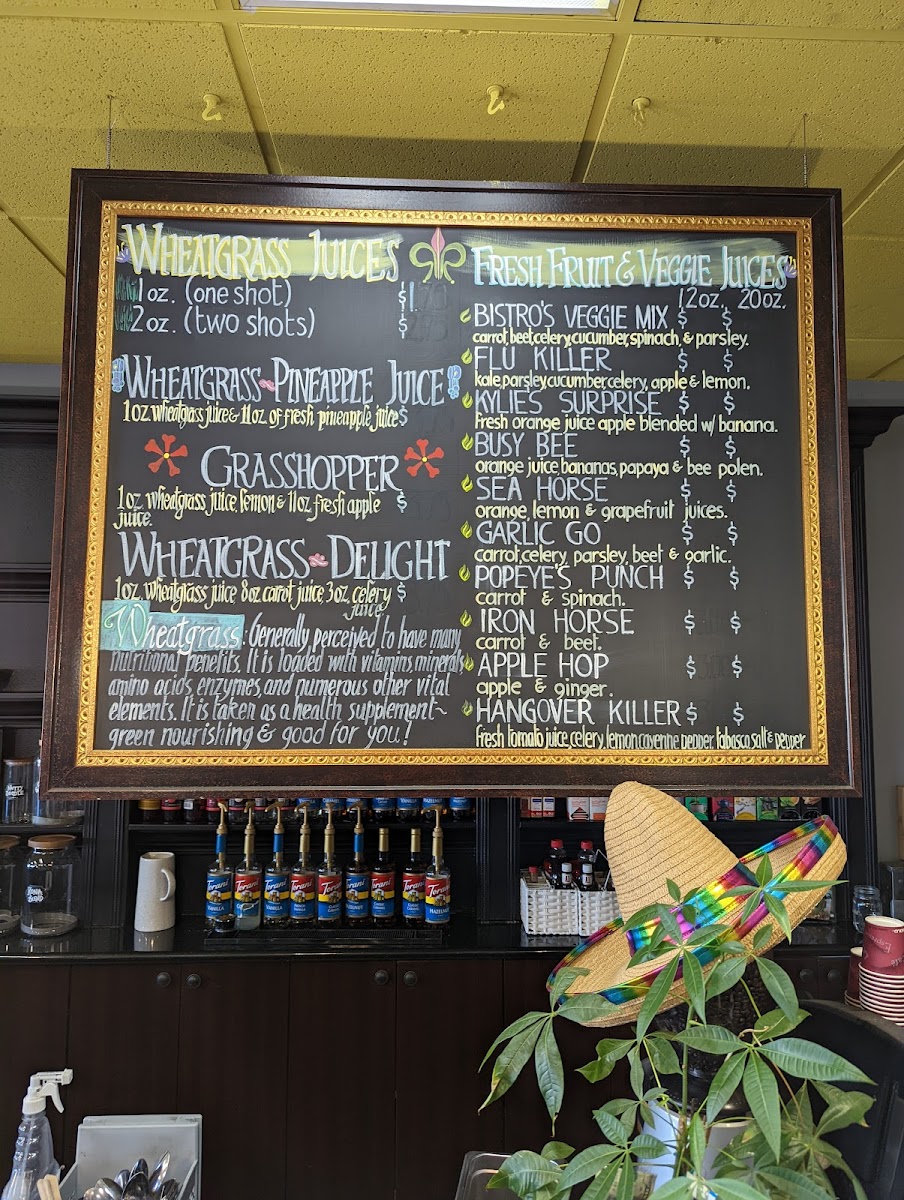 WHEATGRASS JUICES
1 oz. (one shot) $1
2 oz. (two shots) $
WHEATGRASS~PINEAPPLE JUICE
1 oz. wheatgrass juice & 11 oz. of fresh pineapple juice $
GRASSHOPPER
1 oz. wheatgrass juice, lemon & 11 oz fresh apple $
juice.
WHEATGRASS~DELIGHT
1 oz. wheatgrass juice 8 oz carrot juice 3 oz. celery $
juice
Wheatgrass: Generally perceived to have many
nutritional benefits. It is loaded with vitamins minerals,
amino acids, enzymes, and numerous other vital
elements. It is taken as a health supplement~
green nourishing & good for you!
FRESH FRUIT & VEGGIE JUICES
12oz. 20oz.
BISTRO'S VEGGIE MIX $ $
carrot, beet, celery, cucumber, spinach, & parsley.
FLU KILLER $ $
kale, parsley, cucumber, celery, apple & lemon.
KYLIE'S SURPRISE $ $
Fresh orange juice apple blended w/ banana.
BUSY BEE $ $
orange juice, bananas, papaya & bee polen.
SEA HORSE $ $
orange, lemon & grapefruit juices.
GARLIC GO $ $
carrot, celery, parsley, beet & garlic.
POPEYE'S PUNCH $ $
carrot & spinach.
IRON HORSE $ $
carrot & beet.
APPLE HOP $ $
apple & ginger.
HANGOVER KILLER $ $
Fresh tomato juice, celery, lemon, cayenne pepper, tabasco, salt & pepper
Torani Torani Torani Torani Torani Torani Torani Torani Torani
VANILLA
HAZELNUT